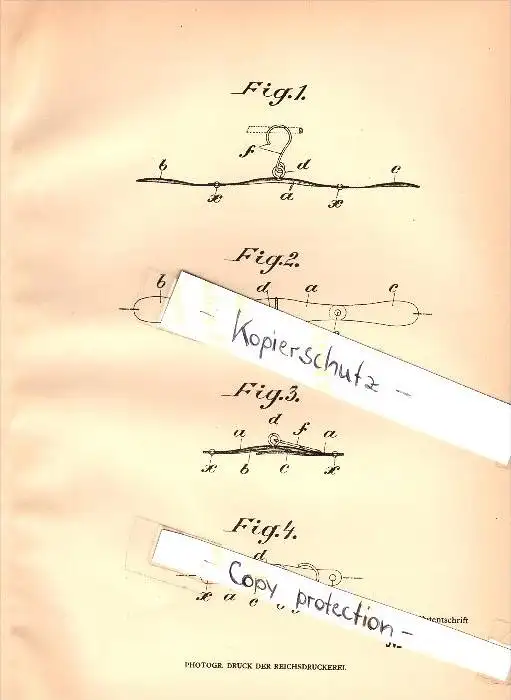 Fig.1.
f d
b c
x a x
Fig.2.
b d a c
- Kopierschutz -
Fig.3.
d
a f a
x b c x
Fig.4.
d
- Copy protection -
x a c
PHOTOGR. DRUCK DER REICHSDRUCKEREI.